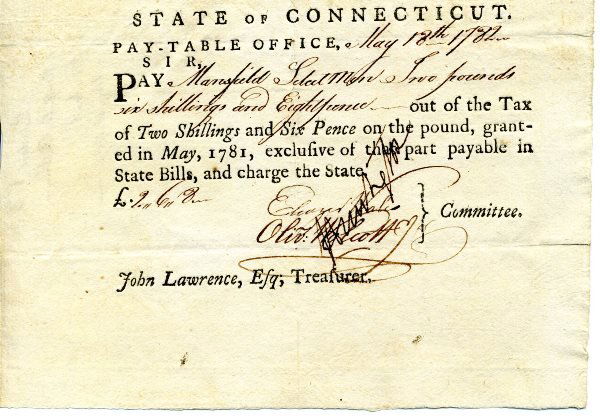 STATE OF CONNECTICUT.
PAY-TABLE OFFICE, May 18th 1782
SIR,
PAY Mansfield Select Men Two pounds
six shillings and Eight pence out of the Tax
of Two Shillings and Six Pence on the pound, grant-
ed in May, 1781, exclusive of the part payable in
State Bills, and charge the State.
£.2.. 6.. 8
Eleazer Wales
Olivr. Wolcott Jr } Committee.
John Lawrence, Esq; Treasurer.